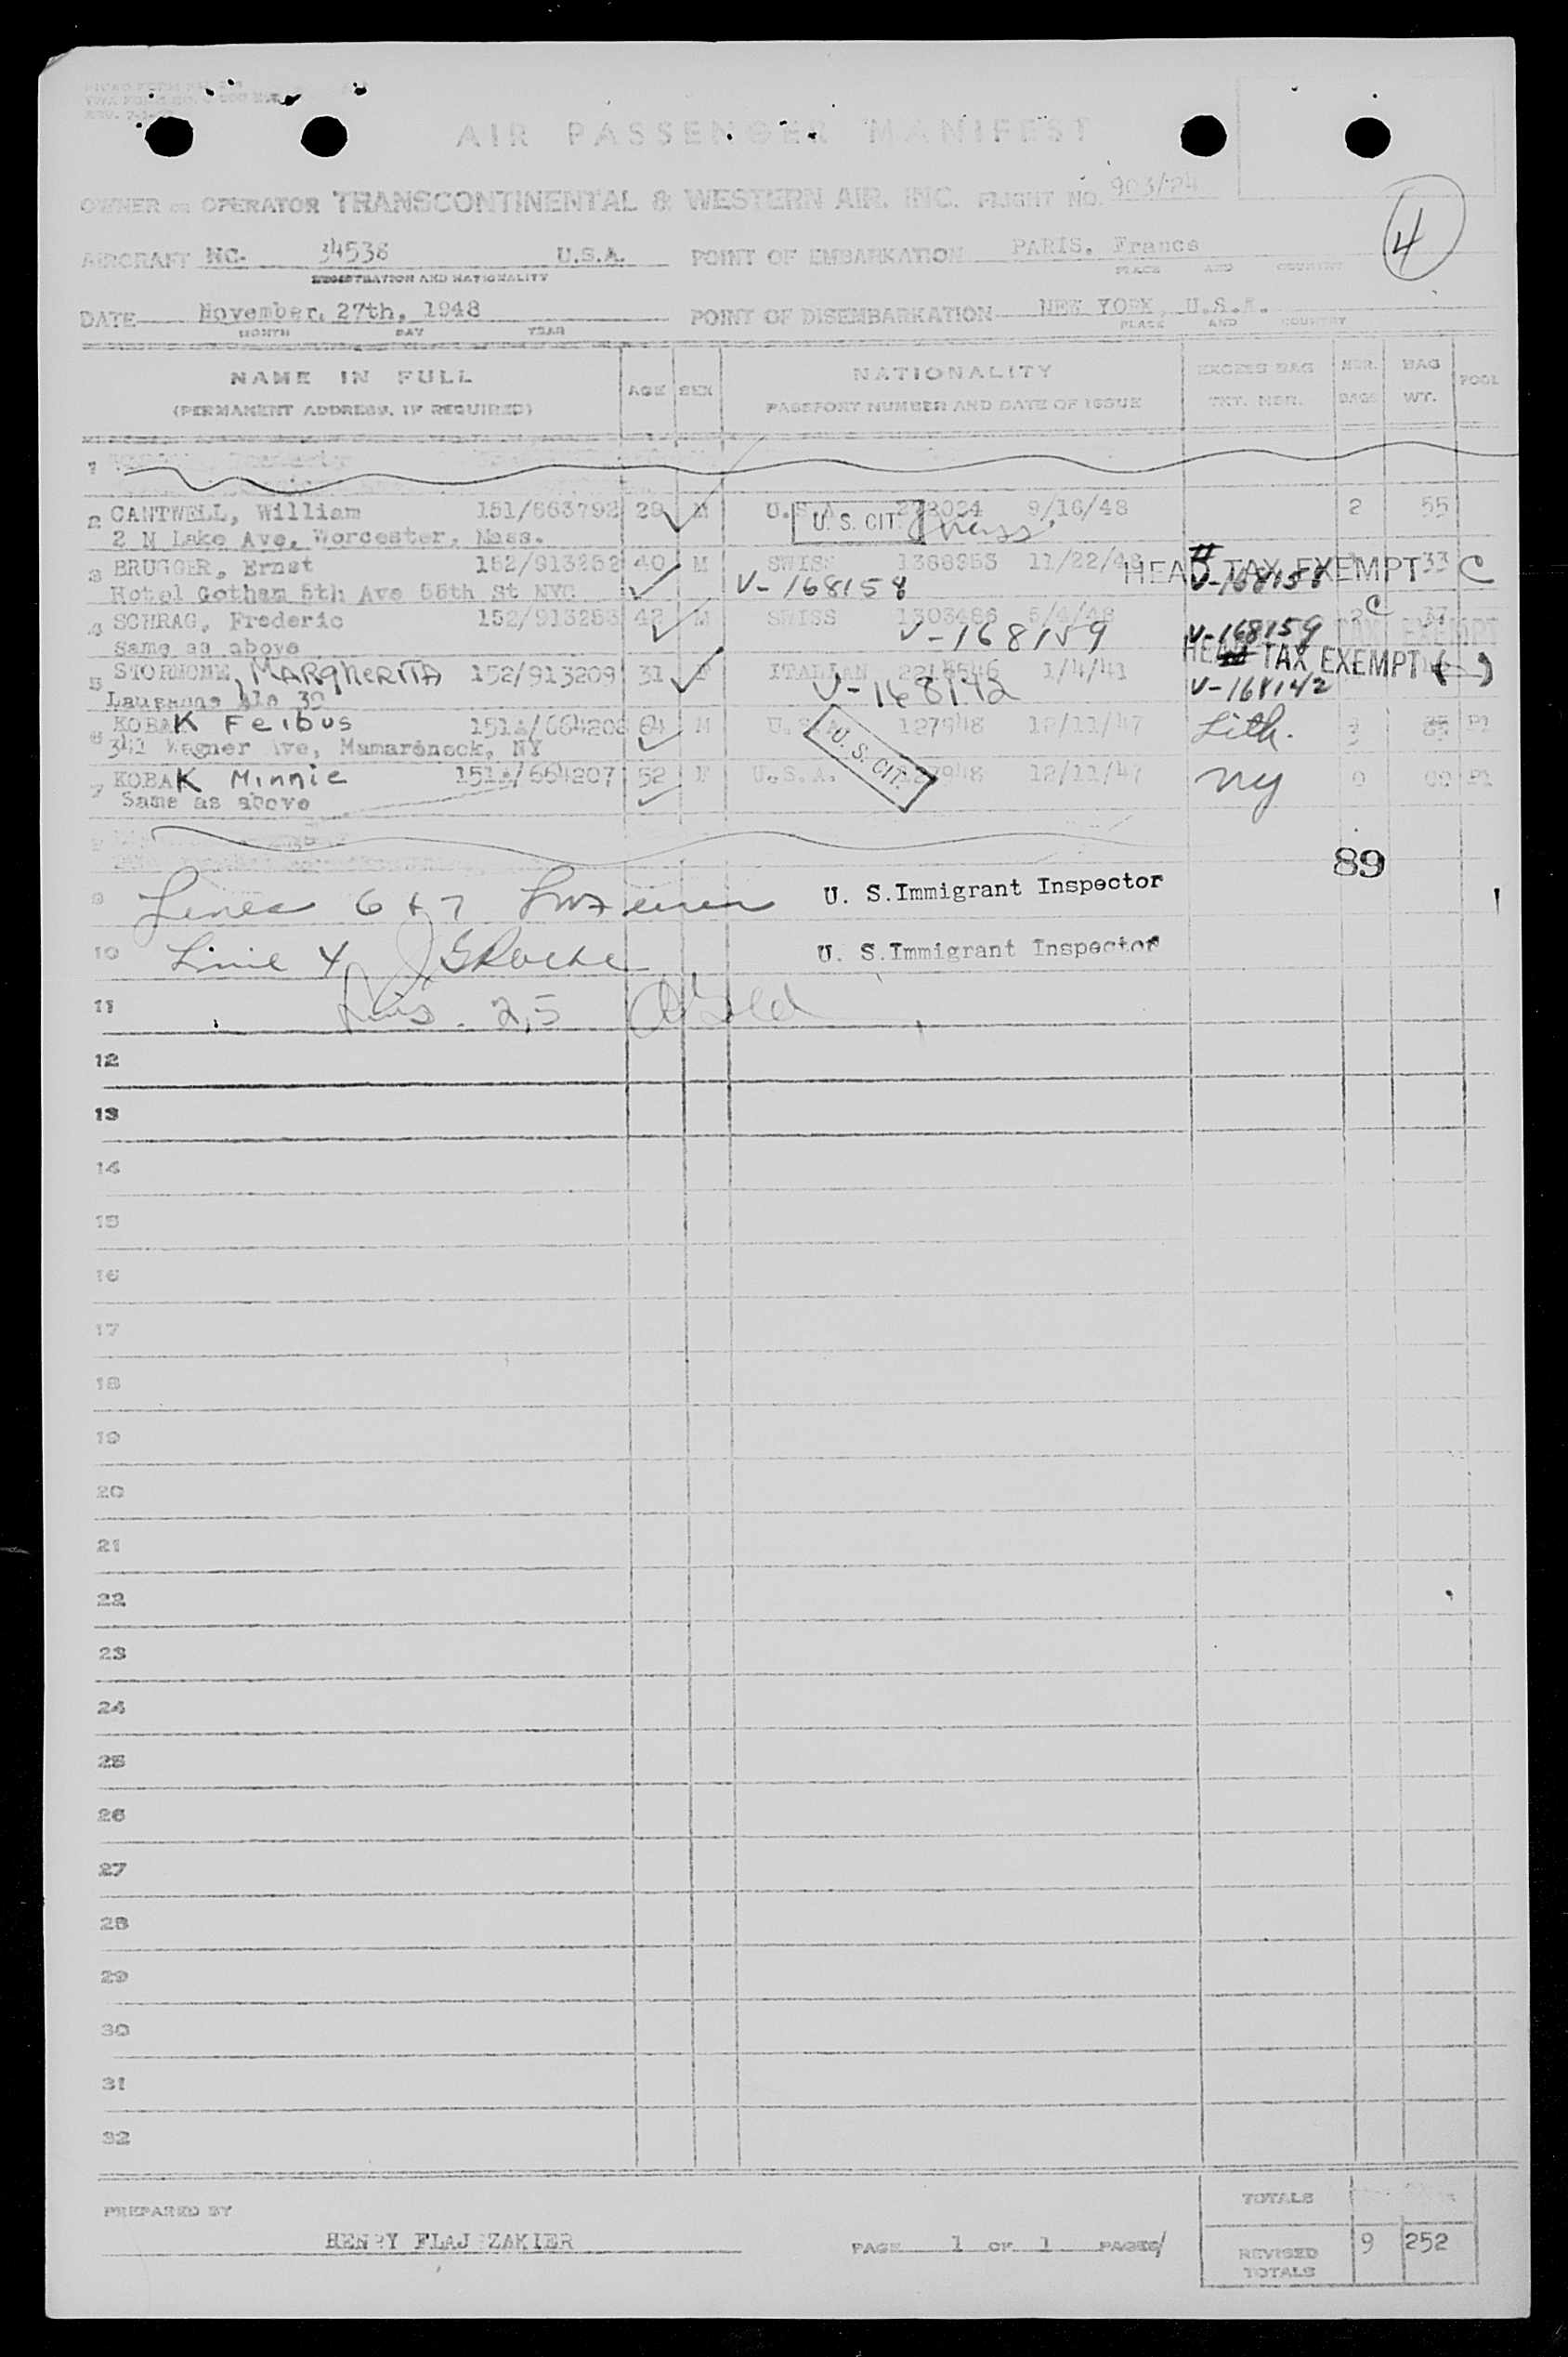 AIR PASSENGER MANIFEST
OWNER OR OPERATOR TRANSCONTINENTAL & WESTERN AIR, INC. FLIGHT NO. 903/24
4
AIRCRAFT NC- 34538 U.S.A. POINT OF EMBARKATION PARIS, France
REGISTRATION AND NATIONALITY PLACE AND COUNTRY
DATE November, 27th, 1948 POINT OF DISEMBARKATION NEW YORK, U.S.A.
MONTH DAY YEAR PLACE AND COUNTRY
NAME IN FULL AGE SEX NATIONALITY EXCESS BAG NBR. BAG POOL
(PERMANENT ADDRESS, IF REQUIRED) PASSPORT NUMBER AND DATE OF ISSUE TKT. NBR. BAGS WT.
1
2 CANTWELL, William 151/663792 29 M U.S.A. U. S. CIT. 9/16/48 2 55
2 N Lake Ave, Worcester, Mass. Mass.
3 BRUGGER, Ernst 152/913252 40 M SWISS 1388953 11/22/48 HEAD TAX EXEMPT 33 C
Hotel Gotham 5th Ave 55th St NYC V-168158 V-168158
4 SCHRAG, Frederic 152/913253 42 M SWISS 1303486 5/4/48 2 C 37
Same as above V-168159 V-168159 TAX EXEMPT
5 STORMONE, MARGHERITA 152/913209 31 F ITALIAN 1/4/41 HEAD TAX EXEMPT ( )
Lausanne 30 V-168142 V-168142
6 KOBAK Feibus 151 /664206 64 M U.S.A. 127948 12/11/47 Lith.
341 Wagner Ave, Mamaroneck, NY U. S. CIT.
7 KOBAK Minnie 151 /664207 52 F U.S.A. 127948 12/11/47 NY 0 00
Same as above
89
9 Lines 6 & 7 U. S.Immigrant Inspector
10 Line 4 U. S.Immigrant Inspector
11 Lins. 2,5
12
13
14
15
16
17
18
19
20
21
22
23
24
25
26
27
28
29
30
31
32
PREPARED BY TOTALS
HENRY FLAJSZAKIER PAGE 1 OF 1 PAGES REVISED TOTALS 9 252